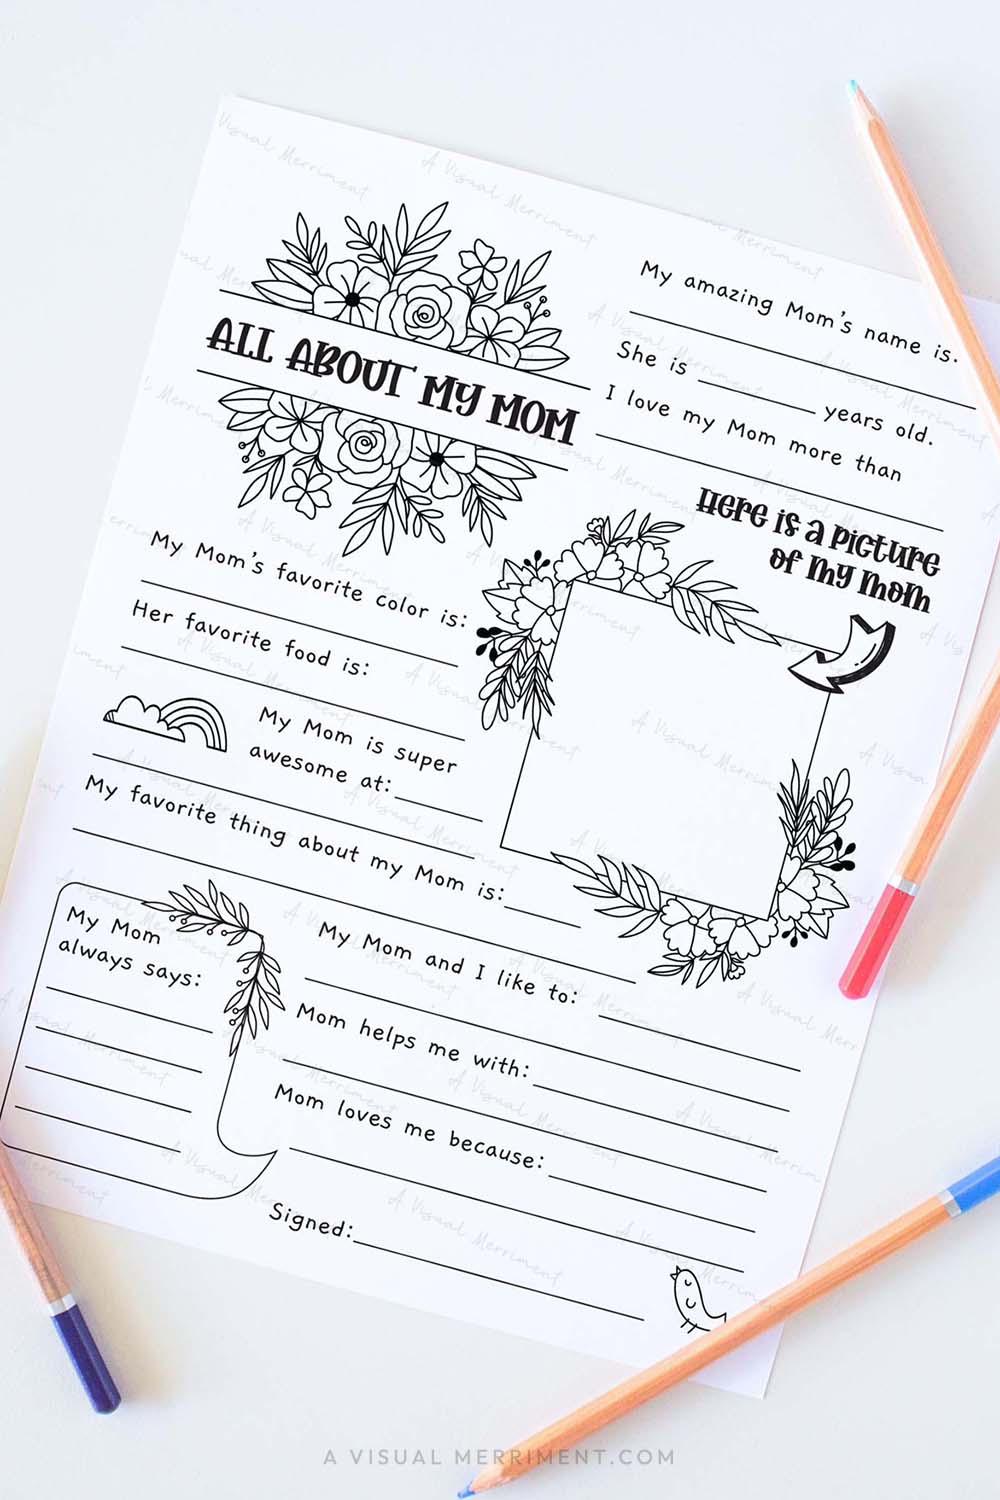 ALL ABOUT MY MOM
My amazing Mom's name is:
She is ______ years old.
I love my Mom more than
Here is a picture
of my mom
My Mom's favorite color is:
Her favorite food is:
My Mom is super
awesome at:
My favorite thing about my Mom is:
My Mom
always says:
My Mom and I like to:
Mom helps me with:
Mom loves me because:
Signed:
A Visual Merriment
A VISUAL MERRIMENT.COM